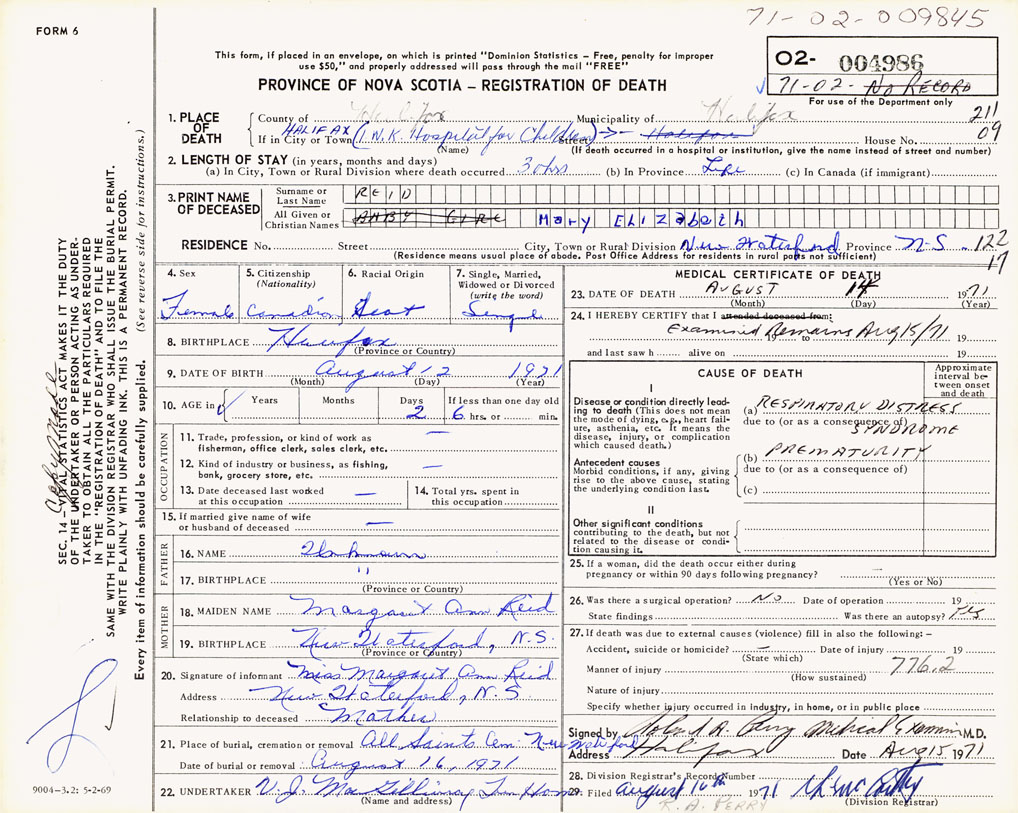 71-02-009845
FORM 6
This form, if placed in an envelope, on which is printed "Dominion Statistics – Free, penalty for improper
use $50," and properly addressed will pass through the mail "FREE"
02- 004986
71-02- No RECORD
For use of the Department only
PROVINCE OF NOVA SCOTIA – REGISTRATION OF DEATH
1. PLACE OF DEATH
County of Halifax Municipality of Halifax 211
If in City or Town HALIFAX (I.W.K. Hospital for Children) Street Halifax House No. 09
(Name) (If death occurred in a hospital or institution, give the name instead of street and number)
2. LENGTH OF STAY (in years, months and days)
(a) In City, Town or Rural Division where death occurred 30hrs (b) In Province Life (c) In Canada (if immigrant)
3. PRINT NAME OF DECEASED
Surname or Last Name REID
All Given or Christian Names BABY GIRL Mary ELIZabeth
RESIDENCE No. Street City, Town or Rural Division New Waterford Province N-S. 122
(Residence means usual place of abode. Post Office Address for residents in rural parts not sufficient) 17
4. Sex Female
5. Citizenship (Nationality) Canadian
6. Racial Origin Scot
7. Single, Married, Widowed or Divorced (write the word) Single
8. BIRTHPLACE Halifax
(Province or Country)
9. DATE OF BIRTH August 12 1971
(Month) (Day) (Year)
10. AGE in Years Months Days 2 If less than one day old 6 hrs. or min.
OCCUPATION
11. Trade, profession, or kind of work as fisherman, office clerk, sales clerk, etc. —
12. Kind of industry or business, as fishing, bank, grocery store, etc. —
13. Date deceased last worked at this occupation —
14. Total yrs. spent in this occupation
15. If married give name of wife or husband of deceased —
FATHER
16. NAME Unknown
17. BIRTHPLACE "
(Province or Country)
MOTHER
18. MAIDEN NAME Margaret Ann Reid
19. BIRTHPLACE New Waterford, N.S.
(Province or Country)
20. Signature of informant Miss Margaret Ann Reid
Address New Waterford, N.S.
Relationship to deceased Mother
21. Place of burial, cremation or removal All Saints Cem New Waterford
Date of burial or removal August 16, 1971
22. UNDERTAKER V. J. MacGillivray Fun Home
(Name and address)
MEDICAL CERTIFICATE OF DEATH
23. DATE OF DEATH AUGUST 14 1971
(Month) (Day) (Year)
24. I HEREBY CERTIFY that I attended deceased from:
Examined Remains Aug 15/71 19
19 to
and last saw h alive on 19
CAUSE OF DEATH
Approximate interval between onset and death
I
Disease or condition directly leading to death (This does not mean the mode of dying, e.g., heart failure, asthenia, etc. It means the disease, injury, or complication which caused death.)
(a) RESPIRATORY DISTRESS
due to (or as a consequence of)
SYNDROME
Antecedent causes
Morbid conditions, if any, giving rise to the above cause, stating the underlying condition last.
(b) PREMATURITY
due to (or as a consequence of)
(c)
II
Other significant conditions
contributing to the death, but not related to the disease or condition causing it.
25. If a woman, did the death occur either during pregnancy or within 90 days following pregnancy? —
(Yes or No)
26. Was there a surgical operation? No Date of operation 19
State findings Was there an autopsy? Yes
27. If death was due to external causes (violence) fill in also the following: –
Accident, suicide or homicide? — Date of injury 19
(State which)
Manner of injury 776.2
(How sustained)
Nature of injury
Specify whether injury occurred in industry, in home, or in public place
Signed by Roland A. Perry Medical Examiner M.D.
Address Halifax Date Aug 15 1971
28. Division Registrar's Record Number
29. Filed August 16th 1971
(Division Registrar)
R. A. PERRY
SEC. 14 – VITAL STATISTICS ACT MAKES IT THE DUTY
OF THE UNDERTAKER OR PERSON ACTING AS UNDER-
TAKER TO OBTAIN ALL THE PARTICULARS REQUIRED
IN THE "REGISTRATION OF DEATH" AND TO FILE THE
SAME WITH THE DIVISION REGISTRAR WHO SHALL ISSUE THE BURIAL PERMIT.
WRITE PLAINLY WITH UNFADING INK. THIS IS A PERMANENT RECORD.
Every item of information should be carefully supplied. (See reverse side for instructions.)
9004-3.2: 5-2-69